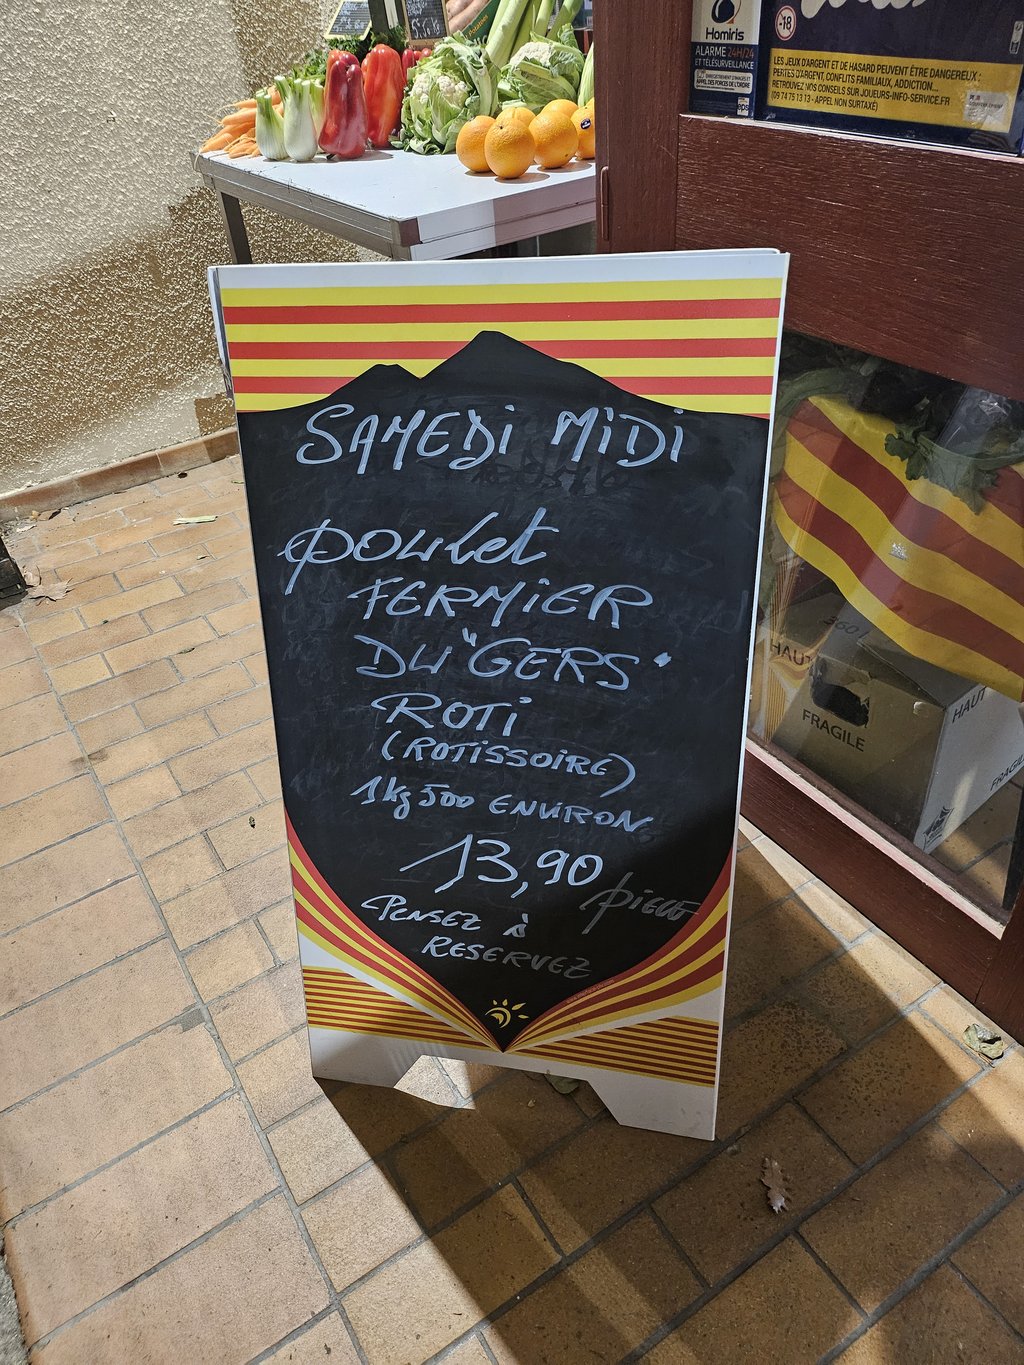 Homiris
ALARME 24H/24
ET TÉLÉSURVEILLANCE
-18
LES JEUX D'ARGENT ET DE HASARD PEUVENT ÊTRE DANGEREUX :
PERTES D'ARGENT, CONFLITS FAMILIAUX, ADDICTION...
RETROUVEZ NOS CONSEILS SUR JOUEURS-INFO-SERVICE.FR
(09 74 75 13 13 - APPEL NON SURTAXÉ)
SAMEDI MIDI
POULET
FERMIER
DU "GERS"
ROTI
(ROTISSOIRE)
1kg 500 ENVIRON
13,90
PIECE
PENSEZ À
RESERVEZ
HAUT
FRAGILE
HAUT
FRAGILE